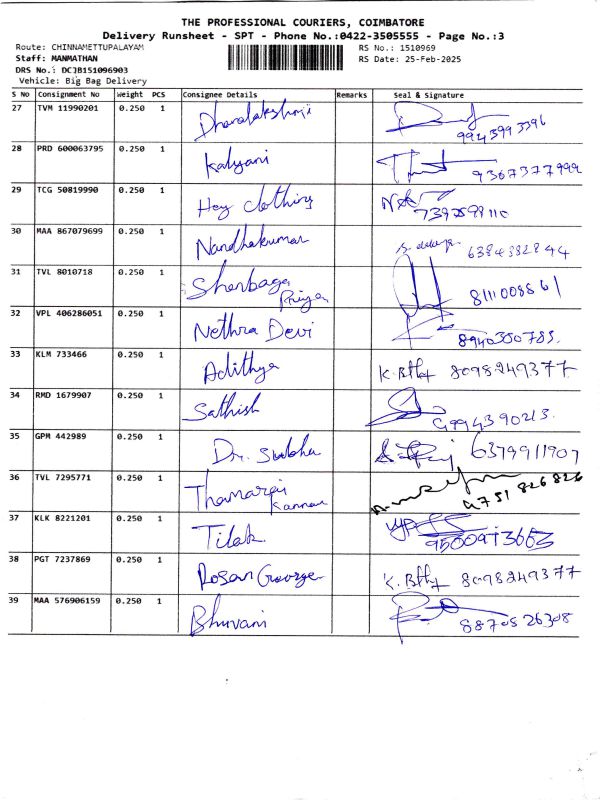 THE PROFESSIONAL COURIERS, COIMBATORE
Delivery Runsheet - SPT - Phone No.:0422-3505555 - Page No.:3
Route: CHINNAMETTUPALAYAM RS No.: 1510969
Staff: MANMATHAN RS Date: 25-Feb-2025
DRS No.: DCJB151096903
Vehicle: Big Bag Delivery
S No Consignment No Weight PCS Consignee Details Remarks Seal & Signature
27 TVM 11990201 0.250 1 Dhanalakshmi 9943993396
28 PRD 600063795 0.250 1 Kalyani 9367377999
29 TCG 50819990 0.250 1 Hey Clothing
30 MAA 867079699 0.250 1 Nandhakumar 6384382844
31 TVL 8010718 0.250 1 Shenbaga Priya 8111008861
32 VPL 406286051 0.250 1 Nethra Devi 8940350783.
33 KLM 733466 0.250 1 Adithya 8098249377
34 RMD 1679907 0.250 1 Sathish 9994390213.
35 GPM 442989 0.250 1 Dr. Subha 6379911907
36 TVL 7295771 0.250 1 Thamarai Kannan 9751826826
37 KLK 8221201 0.250 1 Tilak
38 PGT 7237869 0.250 1 Rosan George 8098249377
39 MAA 576906159 0.250 1 Bhuvani 8870526308